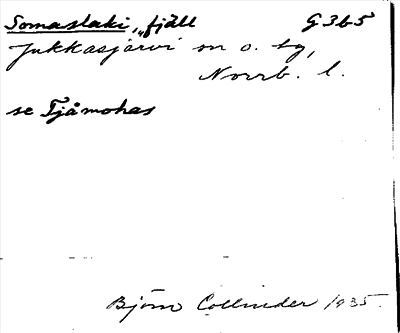 Somaslaki, „fjäll G 365
Jukkasjärvi sn o. tg,
Norrb. l.
se Tjåmohas
Björn Collinder 1935.